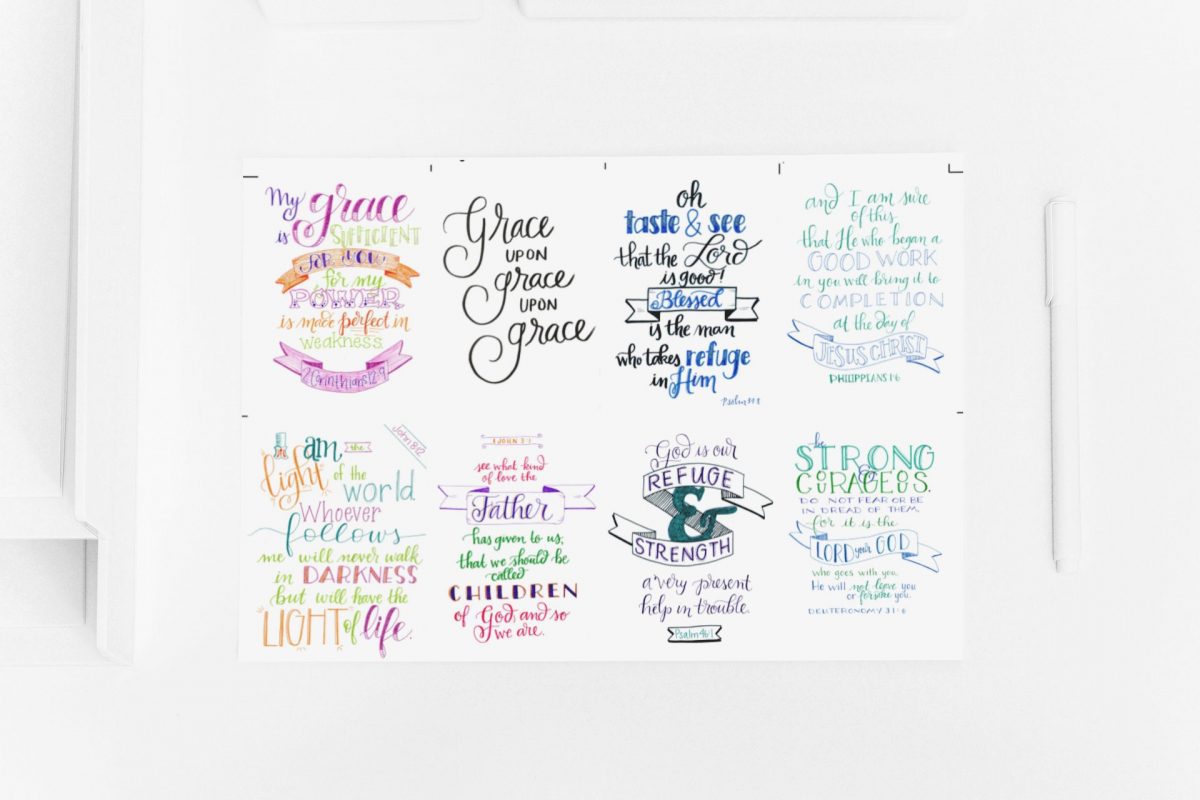 My grace
is SUFFICIENT
FOR YOU!
for my
POWER
is made perfect in
weakness.
2 Corinthians 12:9
Grace
UPON
grace
UPON
grace
oh
taste & see
that the Lord
is good!
Blessed
is the man
who takes refuge
in Him
Psalm 34:8
and I am sure
of this,
that He who began a
GOOD WORK
in you will bring it to
COMPLETION
at the day of
JESUS CHRIST
PHILIPPIANS 1:6
John 8:12
I am the
light of the
world
Whoever
follows
me will never walk
in DARKNESS
but will have the
LIGHT of life.
1 JOHN 3:1
see what kind
of love the
Father
has given to us,
that we should be
called
CHILDREN
of God; and so
we are.
God is our
REFUGE
&
STRENGTH
a very present
help in trouble.
Psalm 46:1
be
STRONG
&
COURAGEOUS.
DO NOT FEAR OR BE
IN DREAD OF THEM,
for it is the
LORD your GOD
who goes with you.
He will not leave you
or forsake you.
DEUTERONOMY 31:6